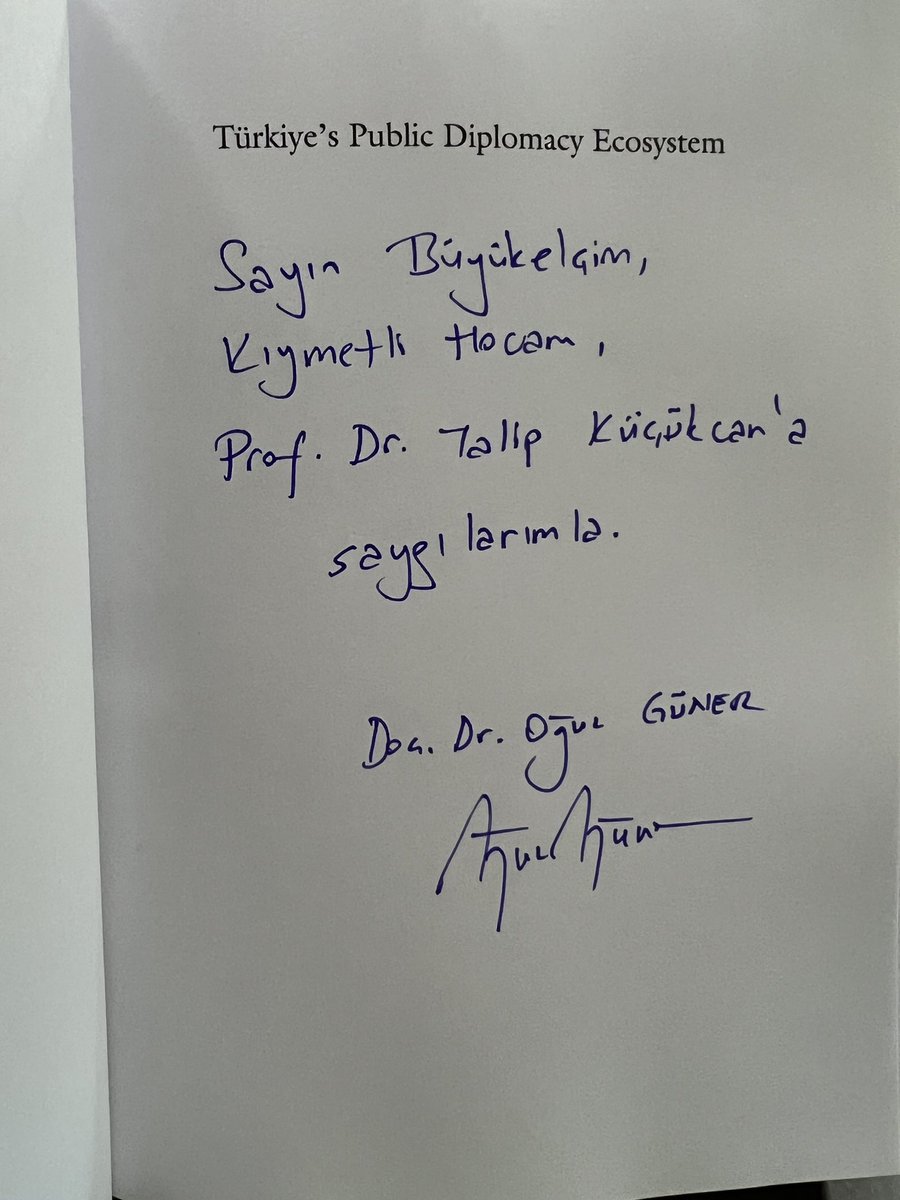 Türkiye's Public Diplomacy Ecosystem
Sayın Büyükelçim,
Kıymetli Hocam,
Prof. Dr. Talip Küçükcan'a
saygılarımla.
Doç. Dr. Oğul GÜNER